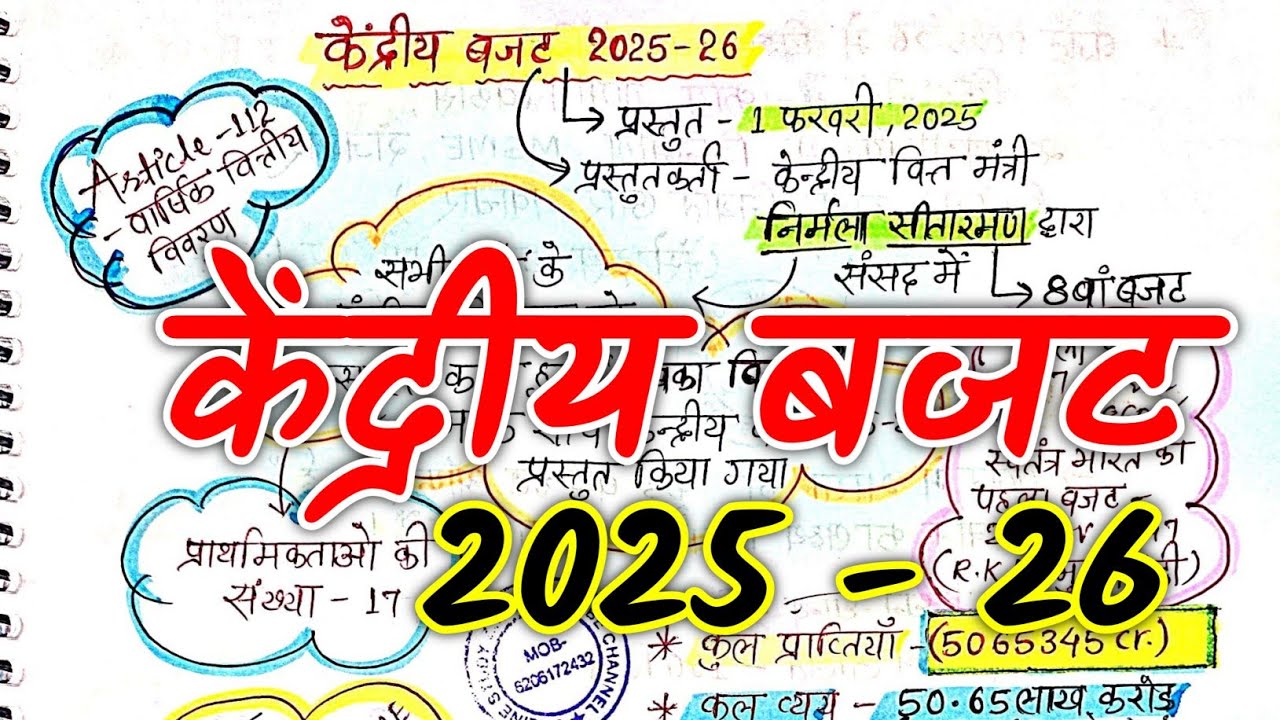 केंद्रीय बजट 2025-26
प्रस्तुत - 1 फरवरी, 2025
प्रस्तुतकर्ता - केन्द्रीय वित्त मंत्री
निर्मला सीतारमण द्वारा
संसद में
8वां बजट
Article-112
- वार्षिक वित्तीय
विवरण
सभी
के
केंद्रीय बजट
2025 - 26
प्रस्तुत किया गया
स्वतंत्र भारत का
पहला बजट -
(R.K
प्राथमिकताओ की
संख्या - 17
MOB-
6206172432
CHANNEL
* कुल प्राप्तियाँ - (5065345 cr.)
* कुल व्यय - 50.65 लाख करोड़